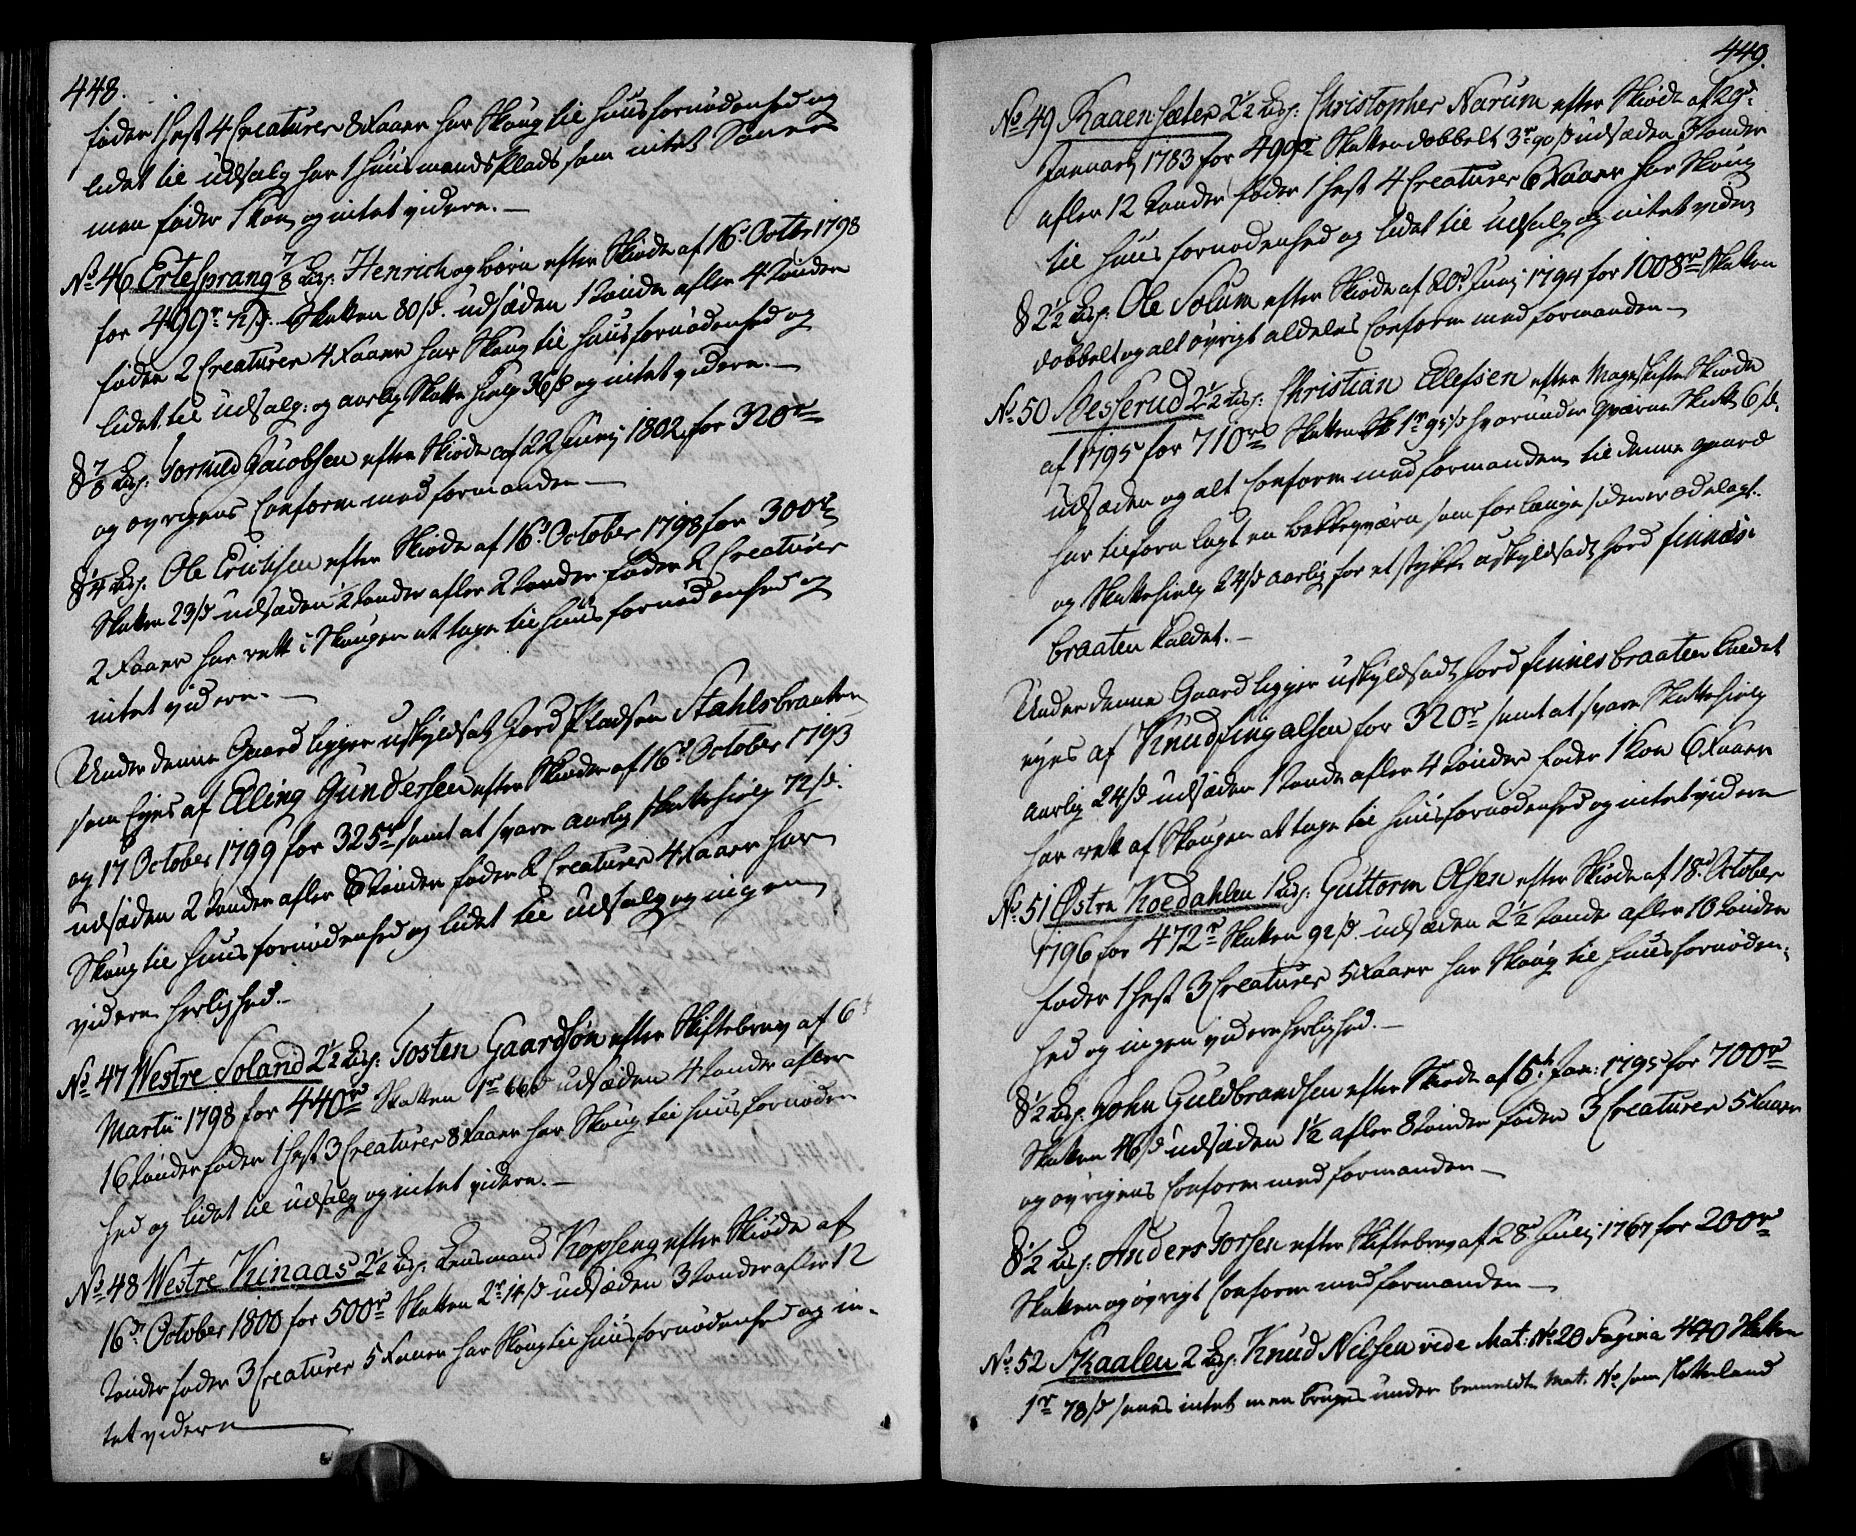 448.
føder 1 Hest 4 Creaturer 8 Faaer har Skoug til Huusfornødenhed og
lidet til udsalg har 1 Huusmands Plads som intet Saaer
men føder 1 Koe, og intet videre. —
No. 46 Ertesprang 7/8 Lisp: Henrich og børn efter Skiøde af 16de Octbr 1798
for 499r 72s. Skatten 80s. udsæden 1 tønde afler 4 tønder
føder 2 Creaturer 4 Faaer har Skoug til Huusfornødenhed og
lidet til udsalg: og aarlig Skatte hielp 36s og intet videre. —
& 7/8 Lisp: Torkild Jacobsen efter Skiøde af 22 Junij 1802 for 320r
og øvrigens Conform med formanden —
& 1/4 Lisp: Ole Erichsen efter Skiøde af 16d October 1798 for 300r
Skatten 23s udsæden 1/2 tønder afler 2 tønder føder 2 Creaturer
2 Faaer har rett i Skougen at tage til Huusfornødenhed og
intet videre. —
Under denne Gaard ligger uskyldsatz Jord Pladsen Stahlsbraaten
som Eyes af Elling Gundersen efter Skiøder af 16d October 1793
og 17 October 1799 for 325r samt at svare aarlig skattehielp 72s.
udsæden 2 tønder afler 8 tønder føder 2 Creaturer 4 Faaer har
Skoug til Huusfornødenhed og lidet til udsalg og ingen
videre herlighed. —
No. 47 Westre Soland 2 1/2 Lisp: Tosten Gaardsøn efter Skiftebrev af 6t
Martii 1798 for 440r Skatten 1r 66s udsæden 4 tønder afler
16 tønder føder 1 Hest 3 Creaturer 8 Faaer har Skoug til Huusfornøden
hed og lidet til udsalg og intet videre. —
No. 48 Westre Kinaas 2 1/2 Lisp: Lensmand Kopseng efter Skiøde af
16d October 1800 for 500r Skatten 2r 14s udsæden 3 tønder afler 12
tønder føder 3 Creaturer 5 Faaer har Skoug til Huusfornødenhed og in-
tet videre —
449.
No. 49 Raaen Sæter 2 1/2 Lisp: Christopher Narum efter Skiøde af 29d
Januarij 1783 for 490r Skatten dobbelt 3r 90s udsæden 3 tønder
afler 12 tønder føder 1 Hest 4 Creaturer 6 Faaer har Skoug
til Huusfornødenhed og lidet til udsalg og intet videre
& 2 1/2 Lisp: Ole Solum efter Skiøde af 20d Junij 1794 for 1008r Skatten
dobbelt og alt øvrigt aldeles Conform med formanden —
No. 50 Besserud 2 1/2 Lisp: Christian Ellefsen efter Mageskifte Skiøde
af 1795 for 710r Skatten 1r 95s hvorunder Qværne Skatt 6s.
udsæden og alt Conform med formanden, til denne gaard
har tilforn lagt en bekkeqværn som for længe siden er ødelagt.
og Skattehielp 24s aarlig for et stykke uskyldsadt Jord finnes-
braaten kaldet. —
Under denne Gaard ligger uskyldsadtz Jord finnesbraaten kaldet
eyes af Knud Fingalsen for 320r samt at svare Skattehielp
aarlig 24s udsæden 1 tønde afler 4 tønder føder 1 Koe 6 Faaer
har rett af Skougen at tage til Huusfornødenhed og intet videre
No. 51 Østre Koedahlen 1 Lisp: Guttorm Olsen efter Skiøde af 18d October
1796 for 472r Skatten 92s. udsæden 2 1/2 tønde afler 10 tønder
føder 1 Hest 3 Creaturer 5 Faaer har Skoug til Huusfornøden-
hed og ingen videre herlighed. —
& 1/2 Lisp: John Guldbrandsen efter Skiøde af 5t Jan: 1795 for 700r
Skatten 46s udsæden 1 1/2 afler 8 tønder føder 3 Creaturer 5 Faaer
og øvrigens Conform med formanden —
& 1/2 Lisp: Anders Torsen efter Skiftebrev af 28d Julij 1767 for 200r
Skatten og øvrigt Conform med formanden —
No. 52 Skaalen 2 Lisp: Knud Nilsen vide Mat: No. 20 Pagina 440 Skatten
1r 78s saaes intet men bruges under bemeldte Mat. No. som Slotteland